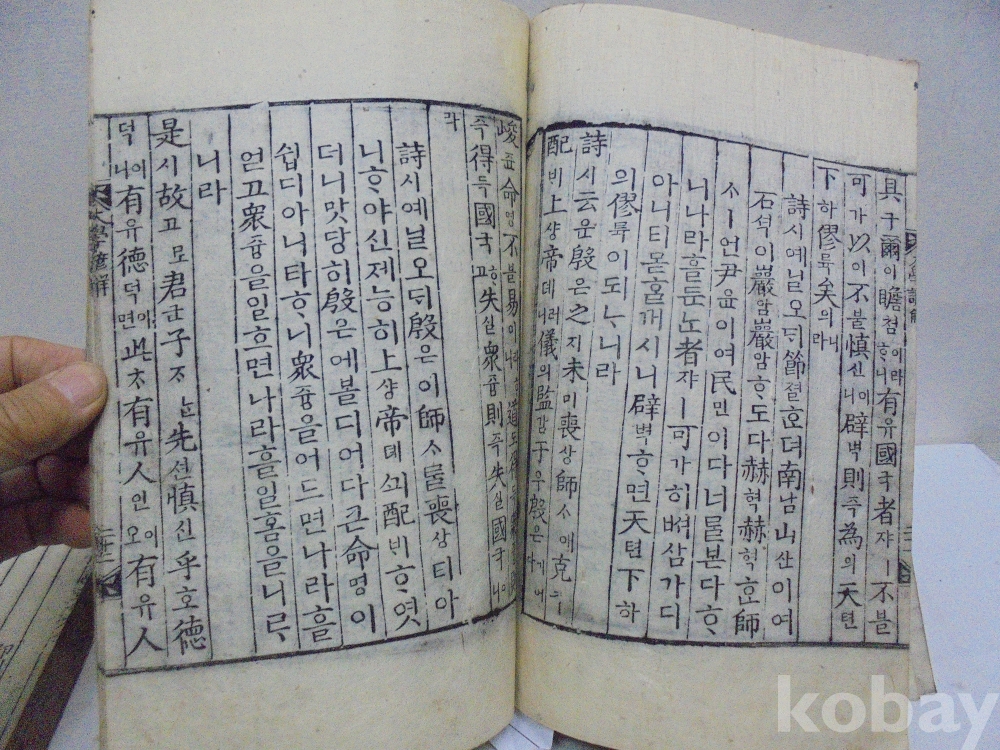 具구爾이瞻쳠이라ᄒᆞ니有유國국者쟈ㅣ不블
可가以이不블愼신이니辟벽則즉為의天텬
下하僇륙矣의니라
詩시예닐오ᄃᆡ節졀ᄒᆞᆫ뎌南남山산이여
石셕이巖암巖암ᄒᆞ도다赫혁赫혁ᄒᆞᆫ師
ᄉᆞㅣ언尹윤이여民민이다너를본다ᄒᆞ
니나라흘둔ᄂᆞᆫ者쟈ㅣ可가히ᄡᅥ삼가디
아니티몯ᄒᆞᆯ꺼시니辟벽ᄒᆞ면天텬下하
의僇륙이도ㅣᄂᆞ니라
詩시云운殷은之지未미喪상師ᄉᆞ애克극
配ᄇᆡ上샹帝뎨러니儀의監감于우殷은이어다
峻쥰命명不블易이니라ᄒᆞ니道도
즉得득國국ᄒᆞ고失실衆즁則즉失실國국이니
라
詩시예닐오ᄃᆡ殷은이師ᄉᆞ를喪상티아
니ᄒᆞ야신제능히上샹帝뎨ᄭᅴ配ᄇᆡᄒᆞ엿
더니맛당히殷은에볼디어다큰命명이
쉽디아니타ᄒᆞ니衆즁을어드면나라흘
얻고衆즁을일흐면나라흘일홈을니ᄅᆞ
니라
是시故고로君군子ᄌᆞᄂᆞᆫ先션慎신乎호德
덕이니有유德덕이면此ᄎᆞ有유人인이오有유人
大學諺解
kobay